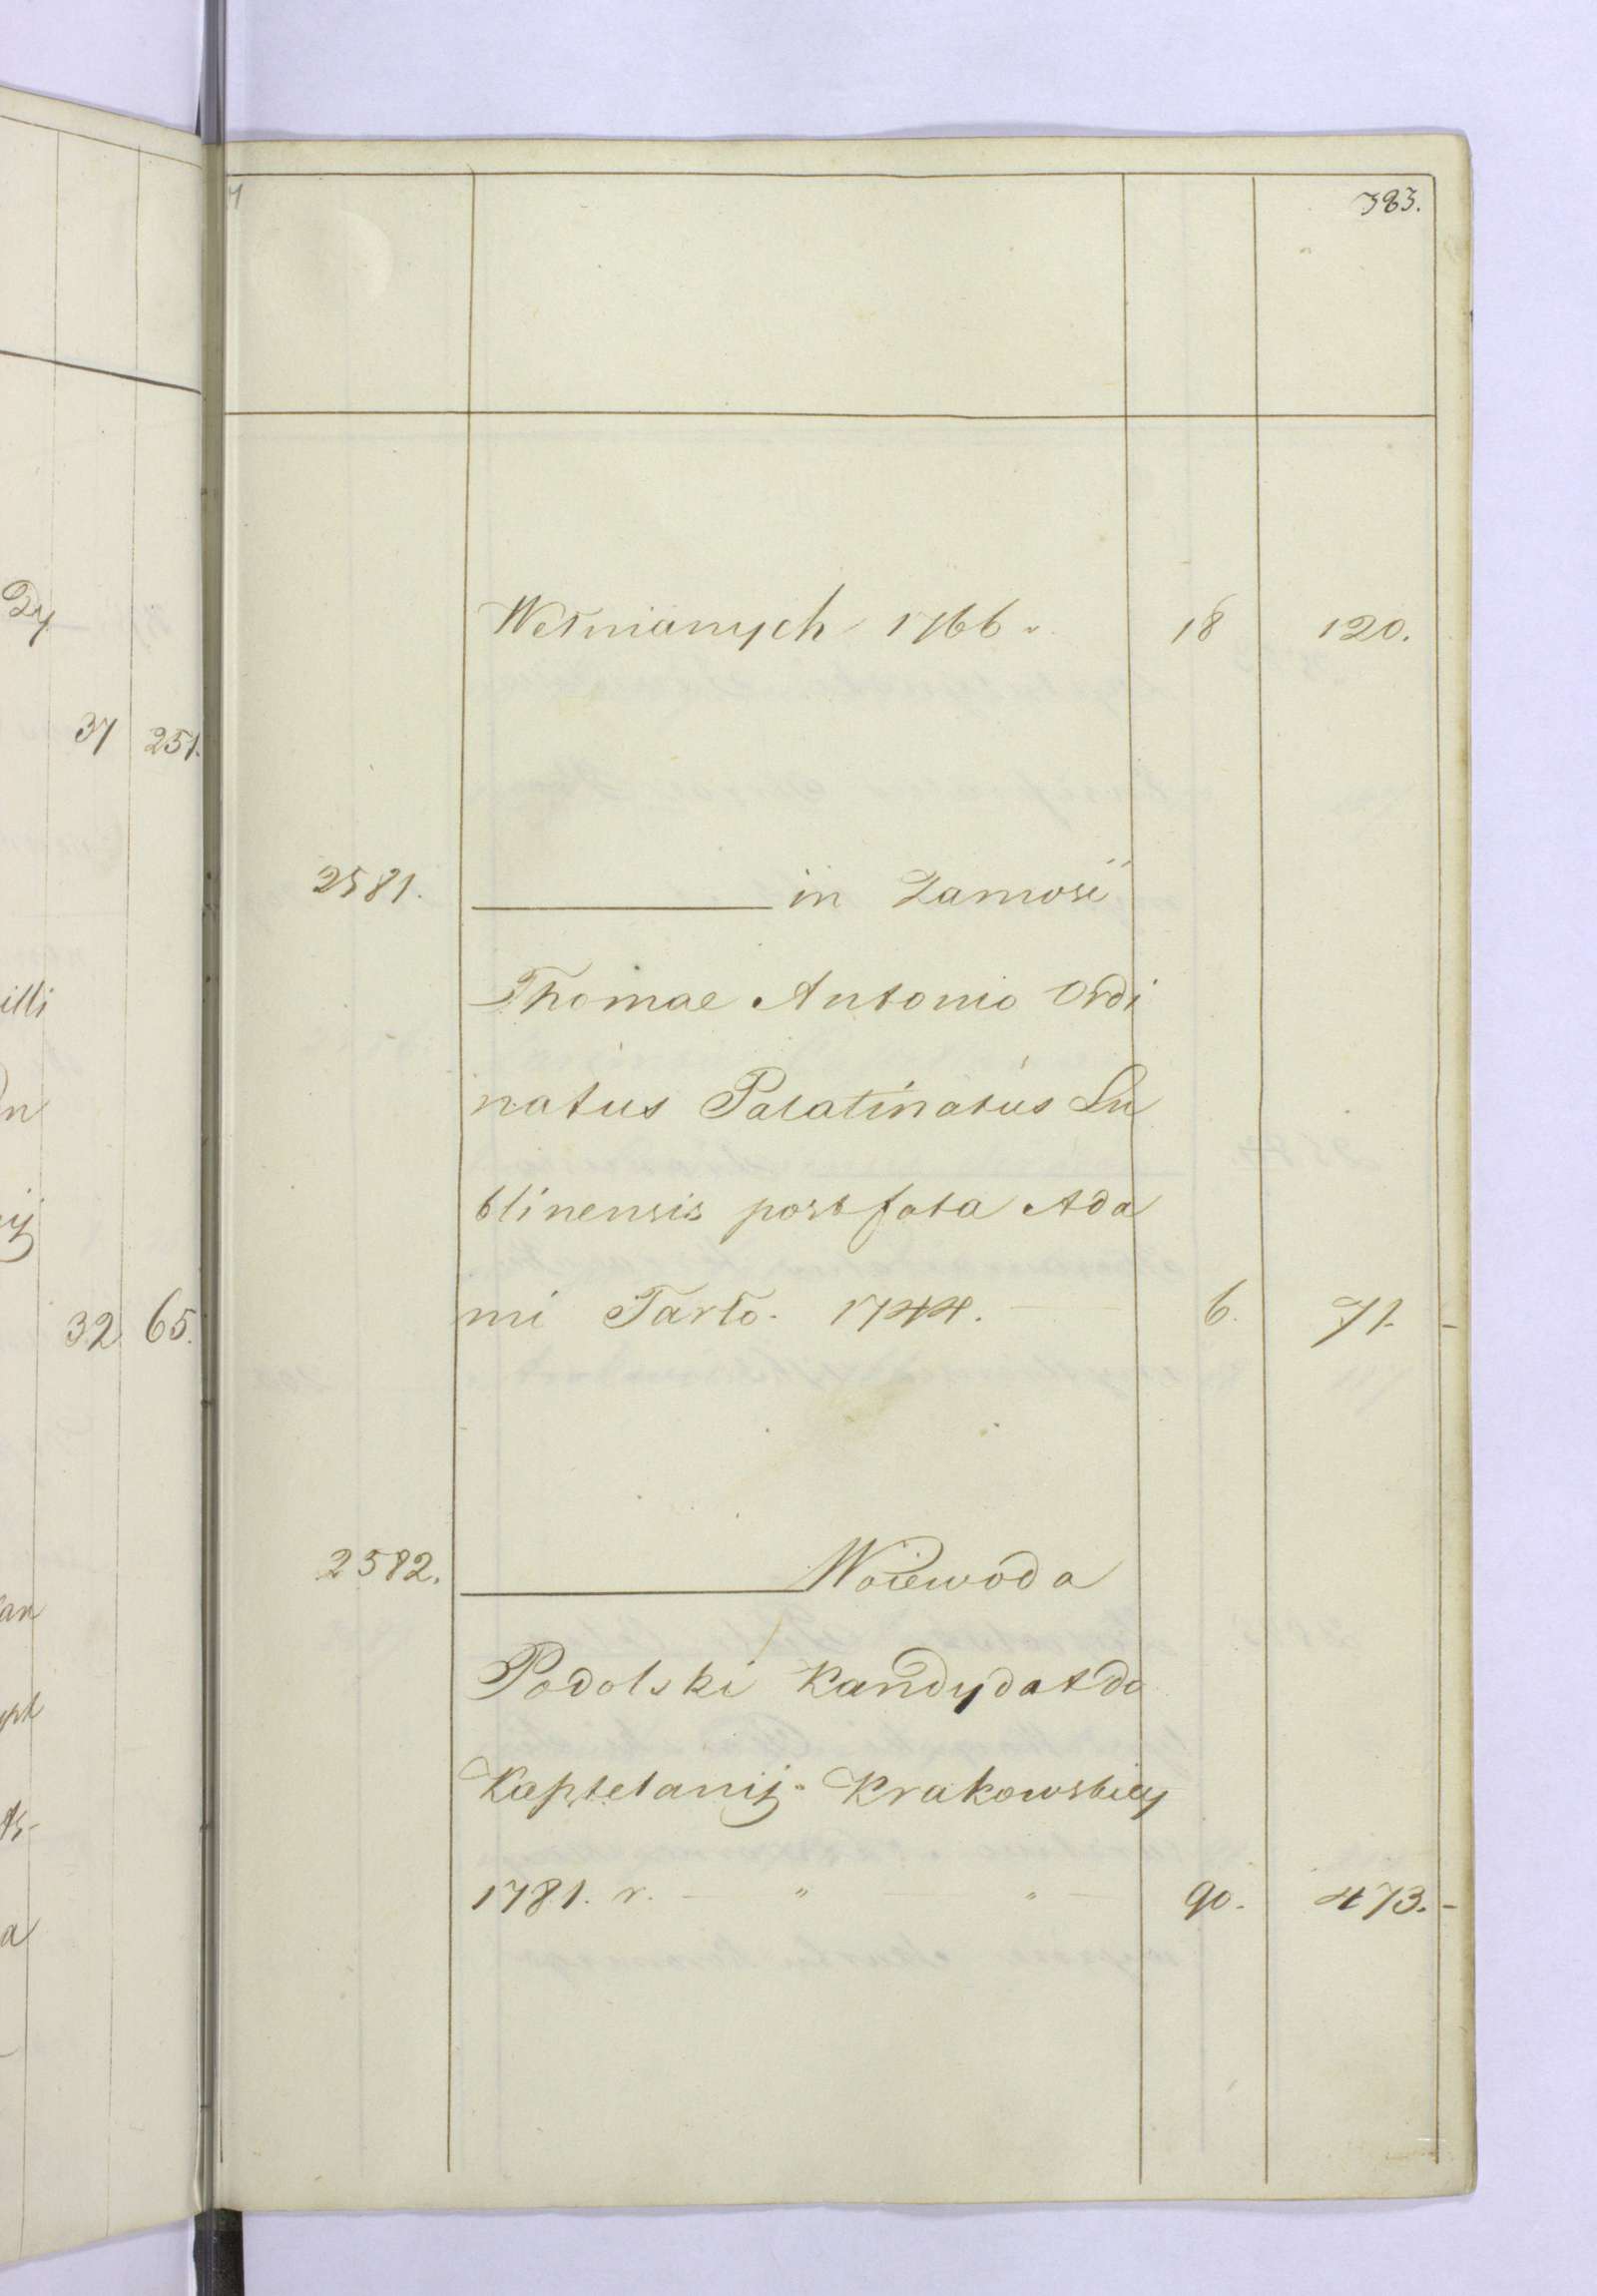 383.
Wełnianych 1766 r. 18 120.
2581. in Zamość
Thomae Antonio Ordi
natus Palatinatus Lu
blinensis post fata Ada
mi Tarło. 1744. — 6. 71. -
2582. Woiewoda
Podolski Kandydat do
Kasztelanij Krakowskiey
1781. r. — " — " — 90. 473. -
Dy
37 251.
illi
32 65.